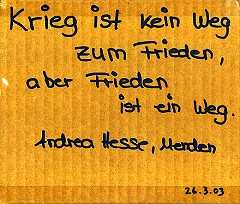 Krieg ist kein Weg
zum Frieden,
aber Frieden
ist ein Weg.
Andrea Hesse, Menden
26.3.03